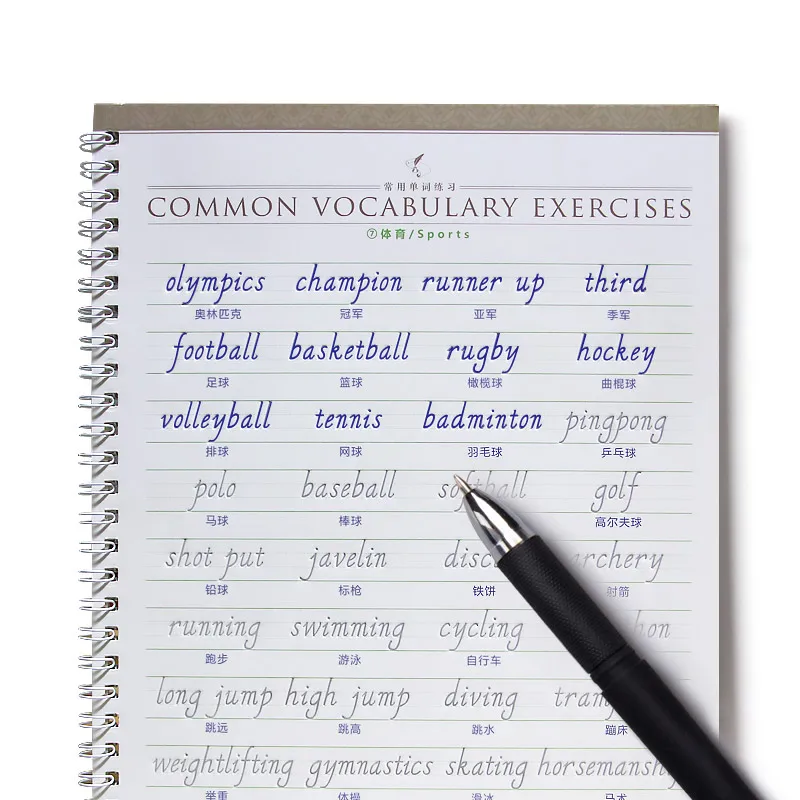 常用单词练习
COMMON VOCABULARY EXERCISES
⑦体育/Sports
olympics champion runner up third
奥林匹克 冠军 亚军 季军
football basketball rugby hockey
足球 篮球 橄榄球 曲棍球
volleyball tennis badminton pingpong
排球 网球 羽毛球 乒乓球
polo baseball softball golf
马球 棒球 高尔夫球
shot put javelin archery
铅球 标枪 铁饼 射箭
running swimming cycling
跑步 游泳 自行车
long jump high jump diving
跳远 跳高 跳水 蹦床
weightlifting gymnastics skating
举重 体操 滑冰 马术